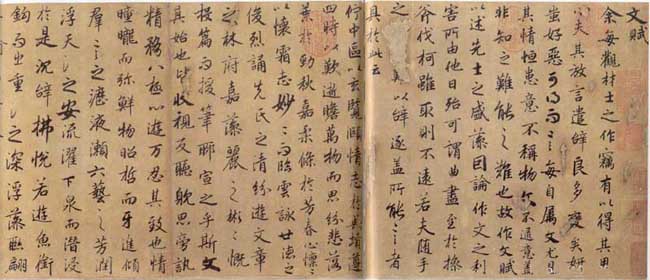 文賦
余每觀材士之作竊有以得其用
心夫其放言遣辭良多變矣妍
蚩好惡可得而言每自属文尤見
其情恒患意不稱物文不逮意蓋
非知之難能之難也故作文賦
以述先士之盛藻因論作文之利
害所由他日殆可謂曲盡至於操
斧伐柯雖取則不遠若夫随手
之以辞逐蓋所能言者
具於此云
佇中區以玄覽頤情志於典墳遵
四時以歎逝瞻萬物而思紛悲落
葉於勁秋嘉柔條於芳春心懍〻
以懷霜志妙〻而臨雲詠世德之
俊烈誦先民之清紛遊文章
之林府嘉藻麗之彬〻慨
投篇而援筆聊宣之乎斯文
其始也皆收視反聽耽思旁訊
精務八極心遊萬忍其致也情
曈曨而弥鮮物昭晢而互進傾
群言之瀝液漱六藝之芳潤
浮天淵之安流濯下泉而潛浸
於是沈辭怫悅若遊魚銜
鈎而出重淵之深浮藻聯翩